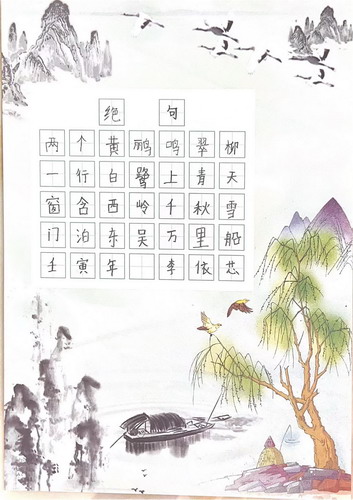 绝 句
两个黄鹂鸣翠柳
一行白鹭上青天
窗含西岭千秋雪
门泊东吴万里船
壬寅年 李依芯